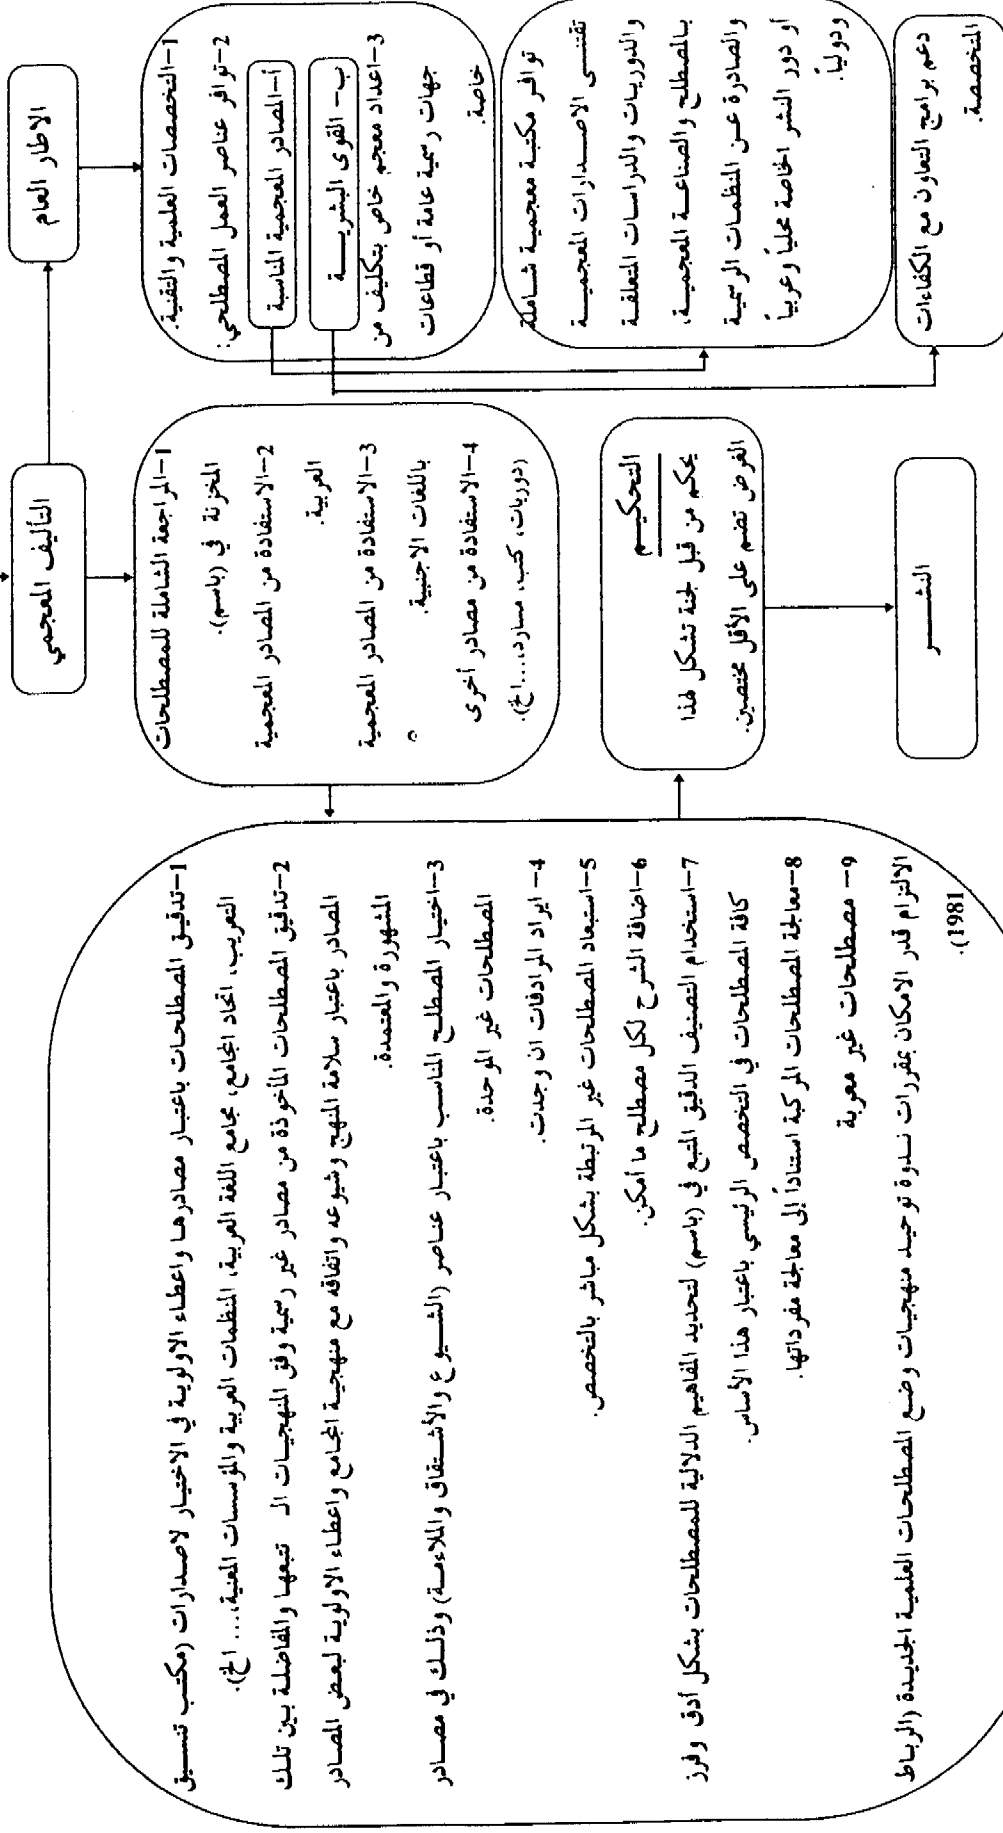 التأليف المعجمي
الاطار العام
1-التخصصات العلمية والتقنية.
2-توافر عناصر العمل المصطلحي:
أ-المصادر المعجمية المناسبة
ب- القوى البشريـــة
3-اعداد معجم خاص بتكليف من
جهات رسمية عامة أو قطاعات
خاصة.
توافر مكتبة معجمية شاملة
تقتني الاصدارات المعجمية
والدوريات والدراسات المتعلقة
بالمصطلح والصناعة المعجمية،
والصادرة عن المنظمات الرسمية
أو دور النشر الخاصة محلياً وعربياً
ودولياً.
دعم برامج التعاون مع الكفاءات
المتخصصة.
1-المراجعة الشاملة للمصطلحات
المخزنة في (باسم).
2-الاستفادة من المصادر المعجمية
العربية.
3-الاستفادة من المصادر المعجمية
باللغات الاجنبية.
4-الاستفادة من مصادر أخرى
(دوريات، كتب، مسارد،...الخ).
1-تدقيق المصطلحات باعتبار مصادرها واعطاء الاولوية في الاختيار لاصدارات (مكتب تنسيق
التعريب، اتحاد المجامع، مجامع اللغة العربية، المنظمات العربية والمؤسسات المعنية،... الخ).
2-تدقيق المصطلحات المأخوذة من مصادر غير رسمية وفق المنهجيات الـ تتبعها والمفاضلة بين تلك
المصادر باعتبار سلامة المنهج وشيوعه واتفاقه مع منهجية المجامع واعطاء الاولوية لبعض المصادر
المشهورة والمعتمدة.
3-اختيار المصطلح المناسب باعتبار عناصر (الشيوع والأشتقاق والملاءمة) وذلك في مصادر
المصطلحات غير الموحدة.
4- ايراد المرادفات ان وجدت.
5-استبعاد المصطلحات غير المرتبطة بشكل مباشر بالتخصص.
6-اضافة الشرح لكل مصطلح ما أمكن.
7-استخدام التصنيف الدقيق المتبع في (باسم) لتحديد المفاهيم الدلالية للمصطلحات بشكل أدق وفرز
كافة المصطلحات في التخصص الرئيسي باعتبار هذا الأساس.
8-معالجة المصطلحات المركبة استناداً إلى معالجة مفرداتها.
9-- مصطلحات غير معربة
الالتزام قدر الامكان بمقررات ندوة توحيد منهجيات وضع المصطلحات العلمية الجديدة (الرباط
1981).
التحكيـــم
يحكم من قبل لجنة تشكل لهذا
الغرض تضم على الأقل مختصين.
النشـــــر